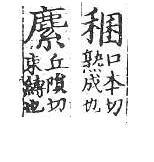 稇
口本切
熟成也
麇
丘隕切
束縛也